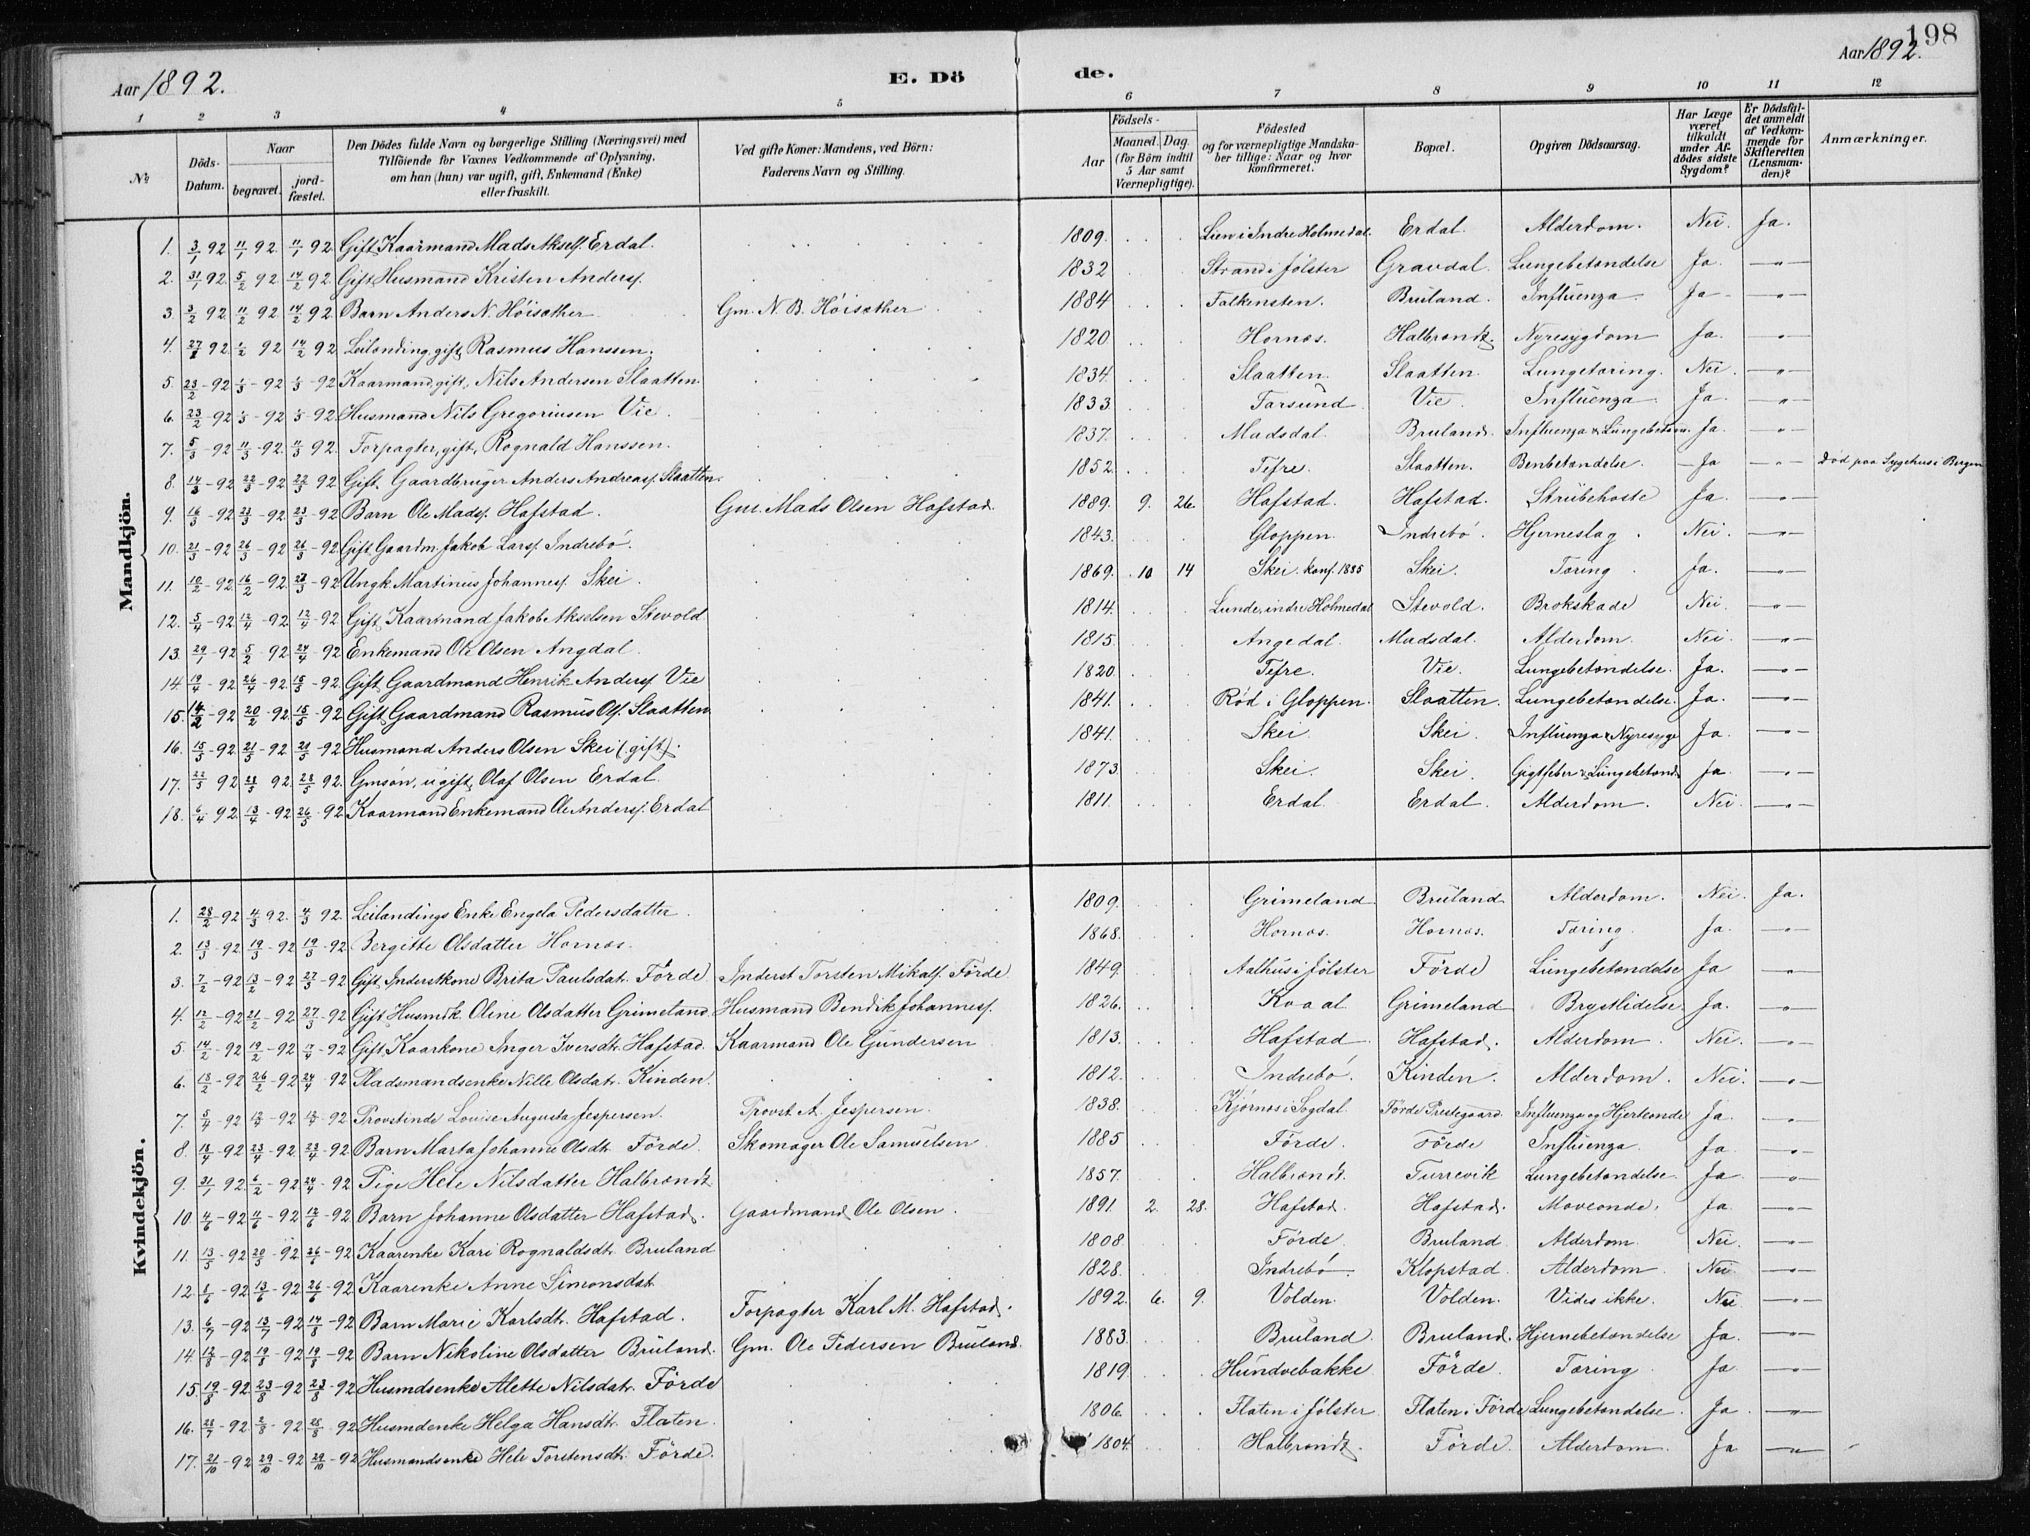 198
Aar 1892. E. Dö de. Aar 1892.
1 2 3 4 5 6 7 8 9 10 11 12
№ Döds-Datum. Naar begravet. jordfæstet. Den Dödes fulde Navn og borgerlige Stilling (Næringsvei) med Tilföiende for Voxnes Vedkommende af Oplysning, om han (hun) var ugift, gift, Enkemand (Enke) eller fraskilt. Ved gifte Koner: Mandens, ved Börn: Faderens Navn og Stilling. Födsels- Aar Maaned. Dag. (for Börn indtil 5 Aar samt Værnepligtige). Födested og for værnepligtige Mandskaber tillige: Naar og hvor konfirmeret. Bopæl. Opgiven Dödsaarsag. Har Læge været tilkaldt under Afdödes sidste Sygdom? Er Dödsfaldet anmeldt af Vedkommende for Skifteretten (Lensmanden)? Anmærkninger.
Mandkjön.
1. 3/1 92 11/1 92. 11/1 92 Gift Kaarmand Mads Akself. Erdal. 1809. Lien i Indre Holmedal. Erdal. Alderdom. Nei. Ja.
2. 31/1 92. 5/2 92. 14/2 92. Gift Husmand Kristen Andersf. 1832 Strand i Jölster Gravdal. Lungebetændelse Ja —"—
3. 3/2 92. 11/2 92 14/2 92. Barn Anders N. Höisæther Gm. N. B. Höisæther 1884 Falkensten. Bruland. Influenza Ja —"—
4. 27/1 92. 1/2 92 14/2 92. Leilænding, gift, Rasmus Hanssen. 1820. Hornæs. Halbrendt. Nyresygdom Ja. —"—
5. 23/2 - 92 1/3 - 92 1/3 - 92 Kaarmand, gift, Nils Andersen Slaatten. 1834. Slaatten. Slaatten. Lungetæring. Nei. —"—
6. 23/2 - 92 1/3 - 92 1/3 - 92. Husmand Nils Gregoriusen Vie. 1833. Farsund. Vie. Influenza. Ja. —"—
7. 5/3 - 92 11/3 - 92 11/3 92. Forpagter, gift, Rognald Hanssen. 1837. Madsdal. Bruland. Influenza & Lungebetæn. Ja. —"—
8. 14/3 - 92 22/3 - 92 22/3 92 Gift Gaardbruger Anders Andreasf. Slaatten. 1852. Tefre. Slaatten. Benbetændelse. Ja —"— Död paa Sygehus i Bergen
9. 16/3 - 92 23/3 - 92 23/3 - 92 Barn Ole Madsf. Hafstad. Gm. Mads Olsen Hafstad. 1889. 9. 26. Hafstad. Hafstad. Strubehoste Ja. —"—
10. 21/3 - 92 26/3 - 92 26/3 - 92 Gift Gaardm. Jakob Larsf. Indrebö. 1843. Gloppen. Indrebö. Hjerneslag. Nei. —"—
11. 10/2 - 92 16/2 - 92. 28/3 - 92 Ungk. Martinus Johannesf. Skei. 1869. 10 14 Skei. konf. 1885 Skei. Tæring. Ja. —"—
12. 5/4 - 92 12/4 - 92 12/4 - 92 Gift Kaarmand Jakob Akselsen Stevold 1814. Lunde, indre Holmedal Stevold. Brokskade Nei. —"—
13. 29/1 - 92 5/2 - 92 24/4 - 92 Enkemand Ole Olsen Angdal. 1815. Angedal. Madsdal. Alderdom. Nei. —"—
14. 19/4 - 92 26/4 - 92 15/5 - 92. Gift Gaardmand Henrik Andersf. Vie 1820. Tefre. Vie. Lungebetændelse. Ja. —"—
15. 14/2 - 92 20/2 - 92. 15/5 - 92. Gift Gaardmand Rasmus Olf. Slaatten. 1841. Rød i Gloppen. Slaatten. Lungebetændelse. Ja. —"—
16. 15/5 - 92 21/5 - 92 21/5 - 92 Husmand Anders Olsen Skei (gift). 1841. Skei. Skei. Influenza & Nyresyge Ja. —"—
17. 22/5 92 28/5 92. 28/5 92. Gmsøn, ugift, Olaf Olsen Erdal. 1873. Skei. Skei. Gigtfeber & Lungebetænd. Ja. —"—
18. 6/4 92. 13/4 - 92 26/5 - 92 Kaarmand Enkemand Ole Andersf. Erdal 1811. Erdal. Erdal. Alderdom. Nei. —"—
Kvindekjön.
1. 28/2 - 92 4/3 92. 4/3 92. Leilændings Enke Engela Pedersdatter. 1809. Grimeland Bruland Alderdom. Nei. Ja.
2. 13/3 - 92 19/3 - 92 19/3 - 92 Bergitte Olsdatter Hornæs. 1868. Hornæs. Hornæs. Tæring. Ja. —"—
3. 7/2 - 92 13/2 - 92 27/3 - 92 Gift Inderstkone Brita Paulsdat. Förde Inderst Torsten Mikalf. Förde 1849. Aalhus i Jölster Förde Lungebetændelse Ja —"—
4. 12/2 - 92 21/2 - 92 27/3 - 92 Gift Husmdk. Oline Olsdatter Grimeland. Husmand Bendik Johannesf. 1826. Kvaal. Grimeland Brystlidelse. Ja. —"—
5. 14/2 - 92 19/2 - 92 - 92 Gift Kaarkone Inger Iversdt. Hafstad. Kaarmand Ole Gundersen 1813. Hafstad Hafstad. Alderdom. Nei. —"—
6. 18/2 - 92 26/2 - 92 24/4 - 92 Pladsmandsenke Nille Olsdatr. Kinden. 1812. Indrebö. Kinden. Alderdom. Nei. —"—
7. 5/4 - 92 12/4 - 92 12/4 - 92 Provstinde Louise Augusta Jespersen. Provst A. Jespersen. 1838. Kjörnæs i Sogndal. Förde Prestegaard. Influenza og Hjerteonde Ja. —"—
8. 18/4 - 92 23/4 - 92 23/4 - 92 Barn Marta Johanne Olsdt. Förde. Skomager Ole Samuelsen 1885 Förde. Förde Influenza. Ja. —"—
9. 31/1 92 6/2 - 92 24/4 - 92 Pige Hele Nilsdatter Halbrendt 1857. Halbrendt. Furrevik Lungebetændelse. Ja —"—
10. 4/6 - 92 11/6 - 92 12/6 - 92 Barn Johanne Olsdatter Hafstad. Gaardmand Ole Olsen. 1891. 2. 28. Hafstad. Hafstad. Maveonde. Ja. —"—
11. 13/5 - 92 20/5 - 92 26/6 - 92 Kaarenke Kari Rognaldsdt. Bruland 1808. Förde. Bruland. Alderdom. Nei. —"—
12. 8/6 - 92 13/6 - 92 26/6 - 92 Kaarenke Anne Simonsdat. 1828. Indrebö. Klopstad. Alderdom. Nei. —"—
13. 6/7 - 92 13/7 - 92 14/8 - 92 Barn Marie Karlsdt. Hafstad. Forpagter Karl M. Hafstad. 1892. 6. 9. Volden. Volden. Vides ikke. Nei —"—
14. 12/8 - 92 19/8 - 92 19/8 - 92 Barn Nikoline Olsdatter Bruland. Gm. Ole Pedersen Bruland. 1883. Bruland. Bruland. Hjernebetændelse Ja. —"—
15. 19/8 - 92 23/8 - 92 23/8 - 92 Husmdsenke Alette Nilsdatr. Förde 1819. Hundvebakke Förde. Tæring. Ja. —"—
16. 28/7 - 92 2/8 - 92 28/8 - 92 Husmdenke Helga Hansdt. Flaten. 1806. Flaten i Jölster Flaten i Förde Lungebetændelse. Ja. —"—
17. 21/10 - 92 29/10 - 92 29/10 - 92 Husmandsenke Hele Torstensdt. Förde. 1804 Halbrendt. Förde. Alderdom. Ja —"—